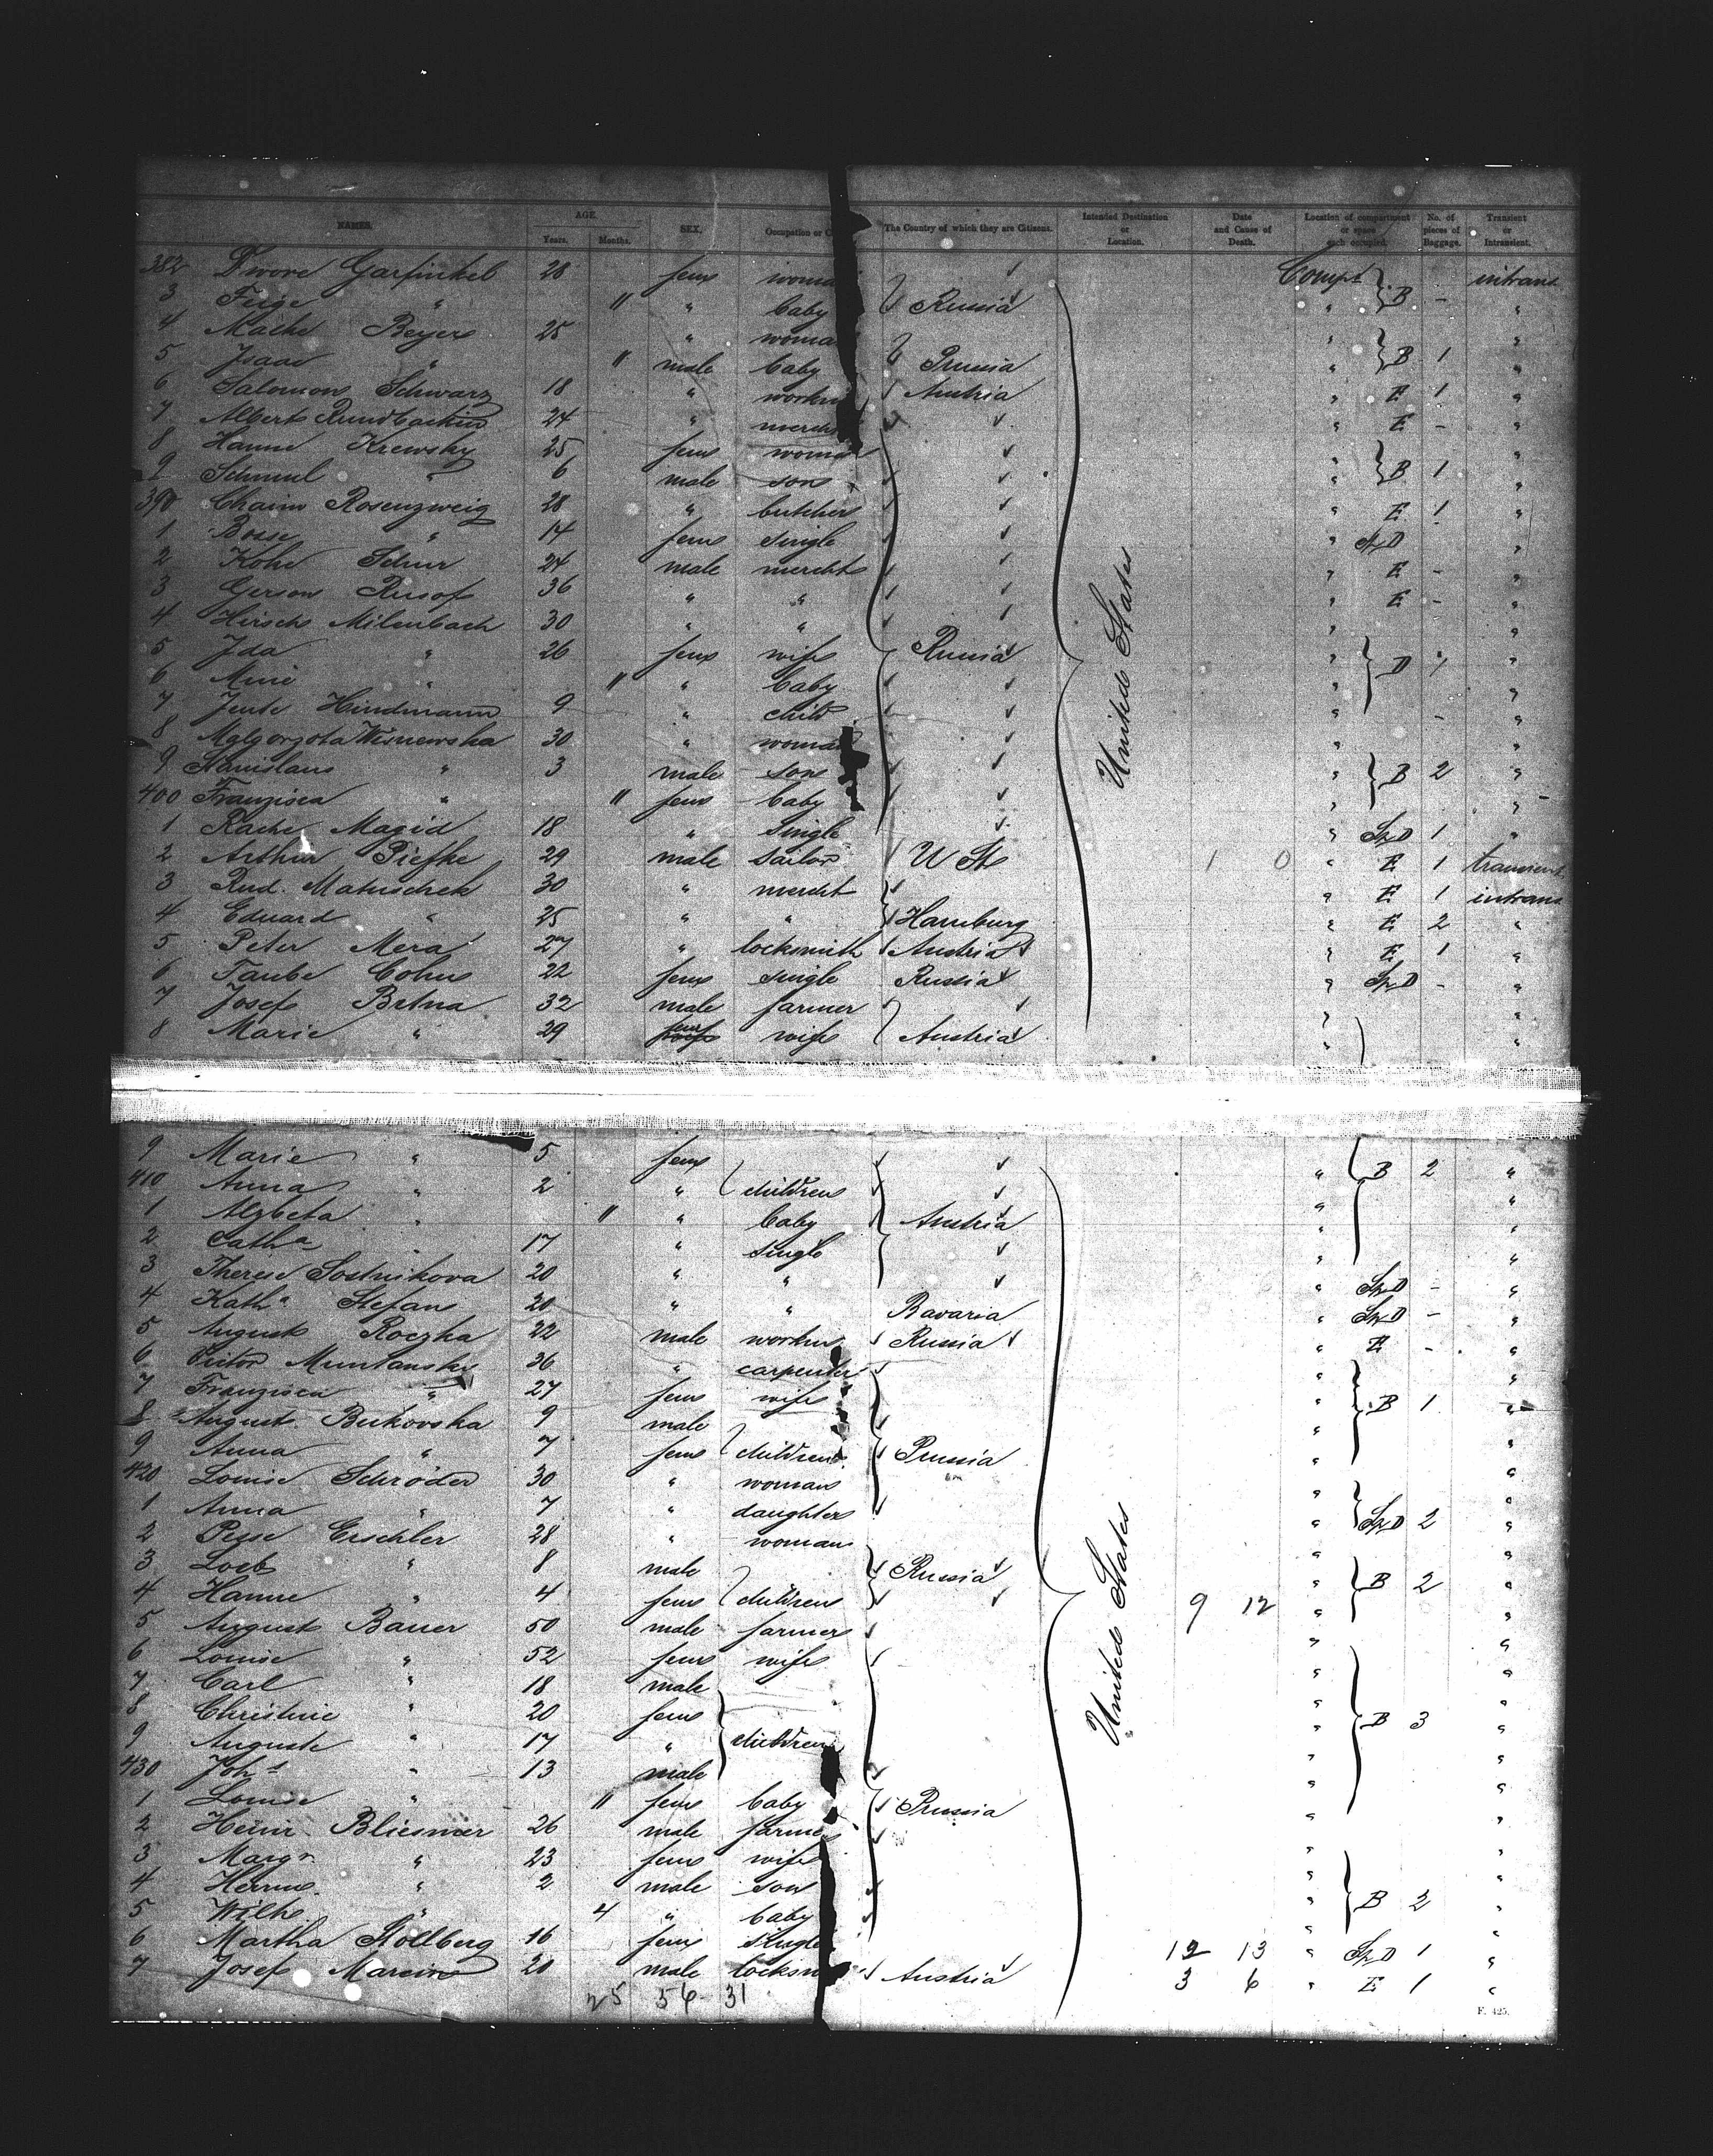 NAMES. AGE. Years. Months. SEX. Occupation or C The Country of which they are Citizens. Intended Destination or Location. Date and Cause of Death. Location of compartment or space each occupied. No. of pieces of Baggage. Transient or Intransient.
382 Dwore Garfinkel 28 fem woma Compt intrans
3 Feige " 11 " baby Russia " B - "
4 Mathe Beyer 25 " woma " "
5 Isaac " 11 male baby Prussia " B 1 "
6 Salomon Schwarz 18 " worker Austria " E 1 "
7 Albert 24 " mercht " E - "
8 Hanne Krewsky 25 fem woman " "
9 Schmul " 6 male son " B 1 "
390 Chaim Rosenzweig 28 " butcher " E 1 "
1 Bosse " 14 fem single " StD "
2 Kohe Schur 24 male mercht " E - "
3 Gerson Rusof 36 " " " E - "
4 Hirsch Milenbach 30 " " " "
5 Ida " 26 fem wife Russia " D 1 "
6 Mini " 11 " baby " "
7 Jente Hindmann 9 " child " - "
8 Malgorzota Wisnewska 30 " woman " "
9 Stanislaus " 3 male son " B 2 "
400 Franzisca " 11 fem baby " "
1 Rache Magid 18 " single " StD 1 "
2 Arthur Piefke 29 male sailor U Sts 1 0 " E 1 transient
3 Rud. Matuschek 30 " mercht " E 1 intrans
4 Eduard " 25 " " Hamburg " E 2 "
5 Peter Mera 27 " locksmith Austria " E 1 "
6 Taube Cohn 22 fem single Russia " StD - "
7 Josef Betna 32 male farmer " "
8 Marie " 29 fem wife Austria " "
United States
9 Marie " 5 fem " B 2 "
410 Anna " 2 " children " "
1 Alzbeta " 11 " baby Austria " "
2 Catha " 17 " single " "
3 Therese Sostnikova 20 " " " StD - "
4 Katha Stefan 20 " " Bavaria " StD - "
5 August Roczka 22 male worker Russia " E - "
6 Victor Muntansky 36 " carpenter " "
7 Franzisca " 27 fem wife " B 1 "
8 August Bukovska 9 male " "
9 Anna " 7 fem children Prussia " "
420 Louise Schröder 30 " woman " "
1 Anna " 7 " daughter " StD 2 "
2 Pesse Erschler 28 " woman " "
3 Loeb " 8 male Russia " B 2 "
4 Hanne " 4 fem children 9 12 " "
5 August Bauer 50 male farmer " "
6 Louise " 52 fem wife " "
7 Carl " 18 male " "
8 Christine " 20 fem " B 3 "
9 Auguste " 17 " children " "
430 Johs " 13 male " "
1 Louise " 11 fem baby Prussia " "
2 Heinr. Bliesmer 26 male farmer " "
3 Margr. " 23 fem wife " "
4 Herm. " 2 male son " B 2 "
5 Wilh. " 4 " baby " "
6 Martha Stollberg 16 fem single 12 13 " StD 1 "
7 Josef Marcin 20 male locksm Austria 3 6 " E 1 "
United States
25 56 31
F. 425.